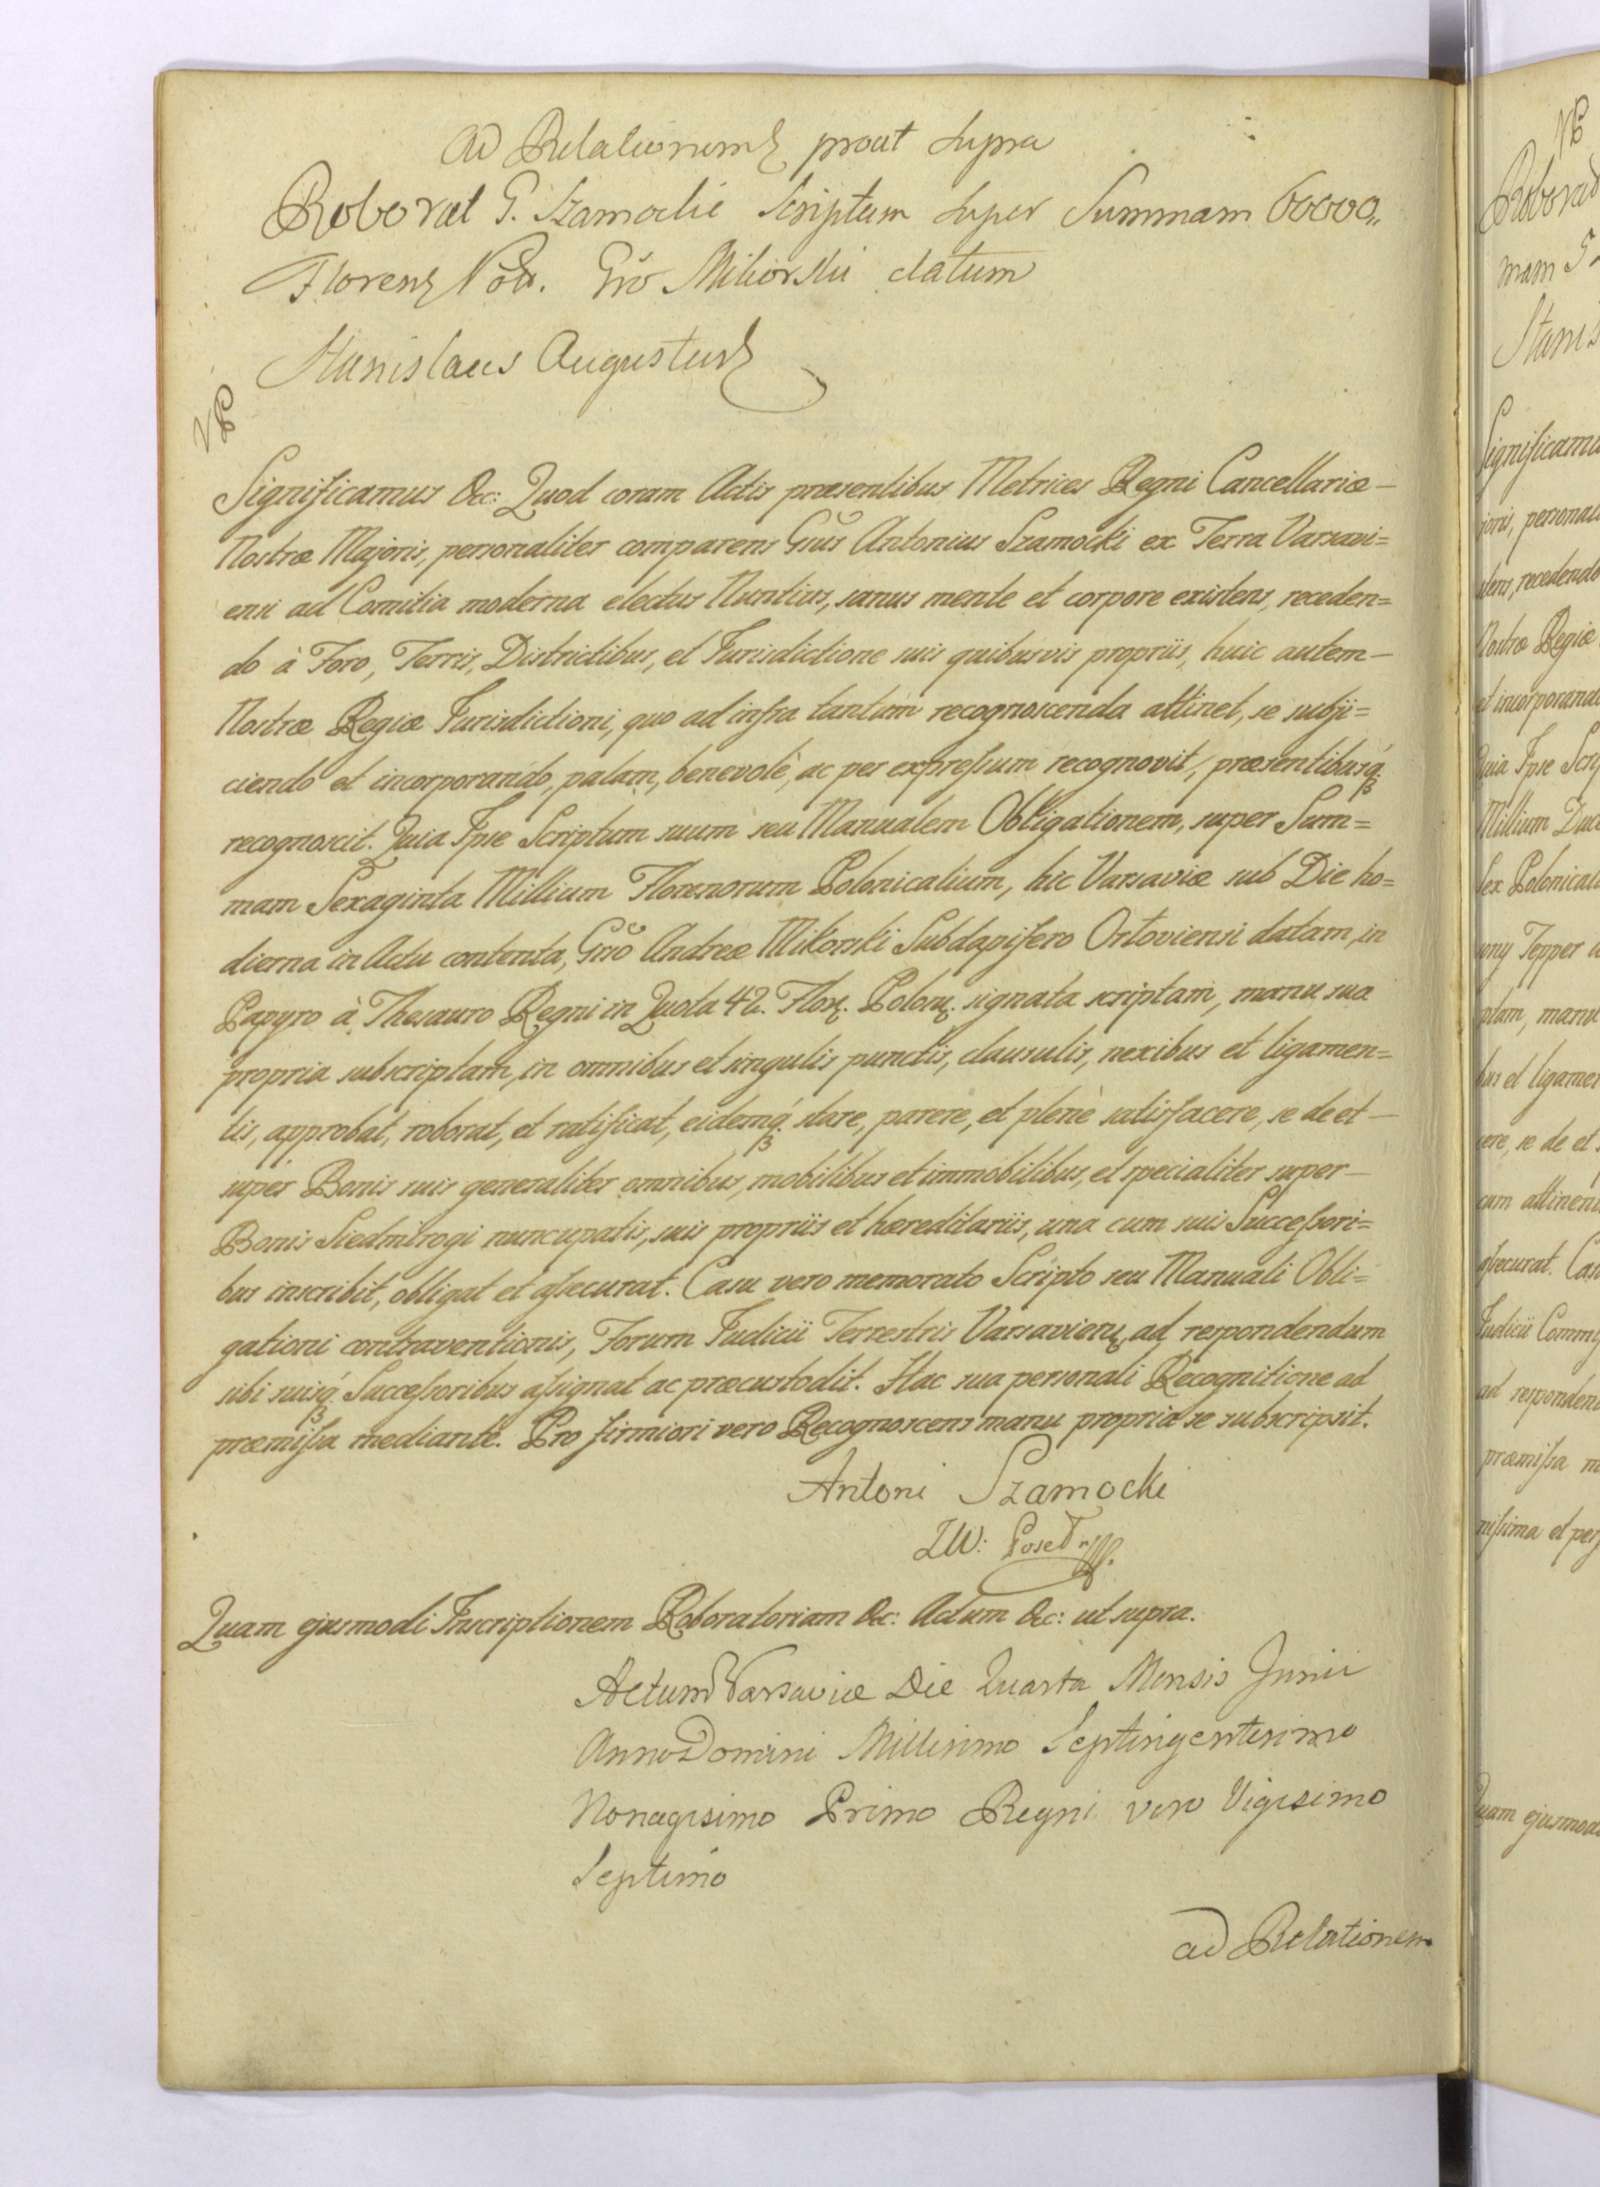 Ad Relationem prout Supra
Roborat G. Szamocki Scriptum Super Summam 60000,,
Floren Pol. Gro Mikorski datum
Stanislaus Augustus
VP
Significamus &c: Quod coram Actis præsentibus Metrices Regni Cancellariæ —
Nostræ Majoris, personaliter comparens Gsus Antonius Szamocki ex Terra Varsavi=
ensi ad Comitia moderna electus Nuntius, sanus mente et corpore existens, receden=
do à Foro, Terris, Districtibus, et Jurisdictione suis quibusvis propriis, huic autem —
Nostræ Regiæ Jurisdictioni, quo ad infra tantum recognoscenda attinet, se subji=
ciendo et incorporando, palam, benevolè, ac per expressum recognovit, præsentibusq.
recognoscit. Quia Ipse Scriptum suum seu Manualem Obligationem, super Sum=
mam Sexaginta Millium Florenorum Polonicalium, hic Varsaviæ sub Die ho=
dierna in Actu contenta, Gsro Andreæ Mikorski Subdapifero Orloviensi datam, in
Papyro à Thesauro Regni in Quota 42. Flor. Polon. signata scriptam, manu sua
propria subscriptam, in omnibus et singulis punctis, clausulis, nexibus et ligamen=
tis, approbat, roborat, et ratificat, eidemq. stare, parere, et plenè satisfacere, se de et —
super Bonis suis generaliter omnibus, mobilibus et immobilibus, et specialiter super —
Bonis Siedmbrogi nuncupatis, suis propriis et hæreditariis, una cum suis Successori=
bus inscribit, obligat et assecurat. Casu vero memorato Scripto seu Manuali Obli=
gationi contraventionis, Forum Judicii Terrestris Varsavien. ad respondendum
sibi suisq. Successoribus assignat ac præcustodit. Hac sua personali Recognitione ad
præmissa mediante. Pro firmiori vero Recognoscens manu propria se subscripsit.
Antoni Szamocki
ZW: Poseł
Quam ejusmodi Inscriptionem Roboratoriam &c: Actum &c: ut supra.
Actum Varsaviæ Die Quarta Mensis Junii
Anno Domini Millesimo Septingentesimo
Nonagesimo Primo Regni vero Vigesimo
Septimo
ad Relationem
VP
Roborat
mam
Stanis
Significamu
joris, personali
recedendo
Nostræ Regiæ
et incorporando
Quia Ipse Scrip
Millium Duc
sex Polonicali
Tepper
ptam, manu
bus et ligamen
cere, se de et
cum attinen
assecurat. Casu
Judicii Commi
ad responden
præmissa m
nissima et per
Quam ejusmodi